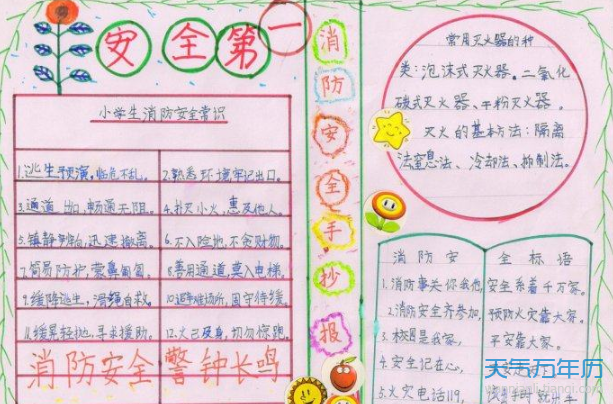 安全第一
小学生消防安全常识
1.逃生预演,临危不乱。
2.熟悉环境牢记出口。
3.通道出口,畅通无阻。
4.扑灭小火,惠及他人。
5.镇静辨向,迅速撤离。
6.不入险地,不贪财物。
7.简易防护,蒙鼻匍匐。
8.善用通道,莫入电梯。
9.缓降逃生,滑绳自救。
10.避难场所,固守待援。
11.缓晃轻抛,寻求援助。
12.火已及身,切勿惊跑。
消防安全 警钟长鸣
消防安全手抄报
常用灭火器的种
类:泡沫式灭火器。二氧化
碳式灭火器、干粉灭火器。
灭火的基本方法:隔离
法窒息法、冷却法、抑制法。
消防安全标语
1.消防事关你我他,安全系着千万家。
2.消防安全齐参加,预防火灾靠大家。
3.校园是我家,平安靠大家。
4.安全记在心,
5.火灾电话119,
天气万年历
wannianli.tianqi.com